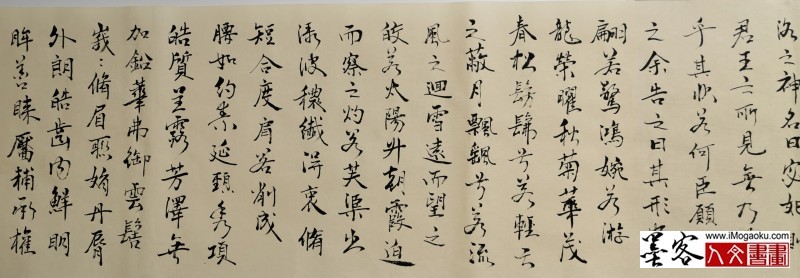 洛之神名曰宓妃
君王之所見無乃
乎其狀若何臣願
之余告之曰其形
翩若驚鴻婉若游
龍榮曜秋菊華茂
春松髣髴兮若輕雲
之蔽月飄颻兮若流
風之迴雪遠而望之
皎若太陽升朝霞迫
而察之灼若芙渠出
淥波穠纖得衷脩
短合度肩若削成
腰如約素延頸秀項
皓質呈露芳澤無
加鉛華弗御雲髻
峩〻脩眉聯娟丹脣
外朗皓齒內鮮明
眸善睞靨輔承權
墨客
www.iMogaoku.com
人文書畫